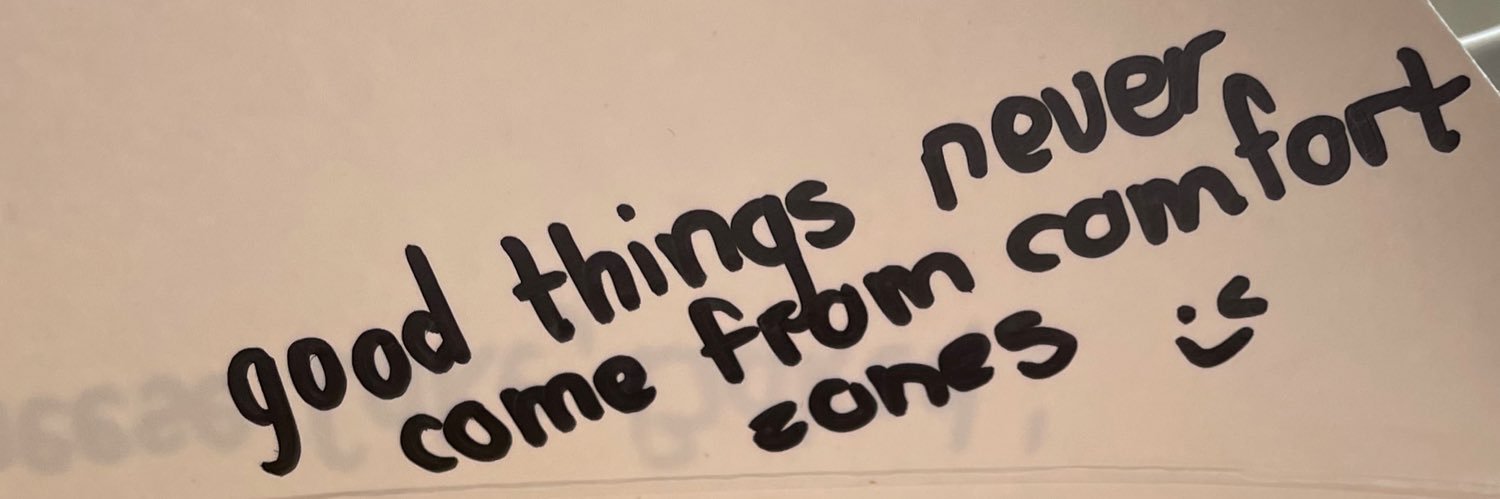 good things never
come from comfort
zones